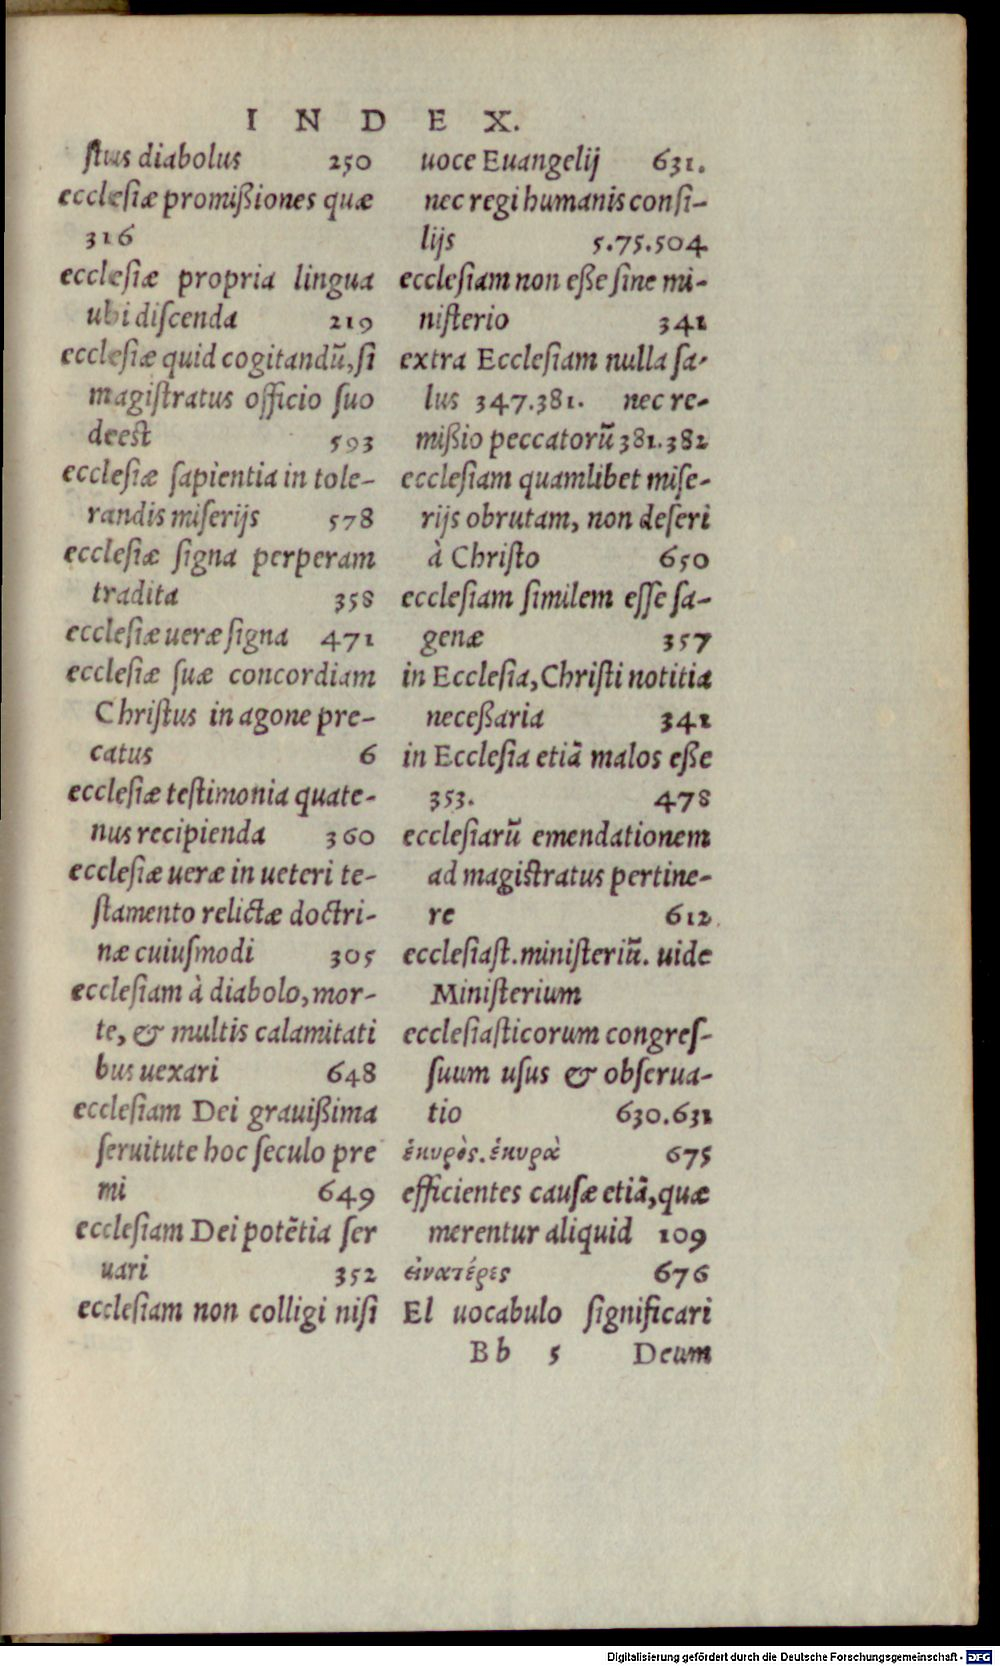 INDEX.
ſtus diabolus 250
ecclesiæ promißiones quæ
316
ecclesiæ propria lingua
ubi diſcenda 219
ecclesiæ quid cogitandũ, ſi
magiſtratus officio ſuo
deest 593
ecclesiæ ſapientia in tole-
randis miſerijs 578
ecclesiæ ſigna perperam
tradita 358
ecclesiæ ueræ ſigna 471
ecclesiæ ſuæ concordiam
Chriſtus in agone pre-
catus 6
ecclesiæ teſtimonia quate-
nus recipienda 360
ecclesiæ ueræ in ueteri te-
ſtamento relictæ doctri-
næ cuiuſmodi 305
ecclesiam à diabolo, mor-
te, & multis calamitati
bus uexari 648
ecclesiam Dei grauißima
ſeruitute hoc ſeculo pre
mi 649
ecclesiam Dei potẽtia ſer
uari 352
ecclesiam non colligi niſi
uoce Euangelij 631.
nec regi humanis conſi-
lijs 5.75.504
eccleſiam non eße ſine mi-
niſterio 341
extra Eccleſiam nulla ſa-
lus 347.381. nec re-
mißio peccatorũ 381.382
eccleſiam quamlibet miſe-
rijs obrutam, non deſeri
à Chriſto 650
eccleſiam ſimilem eſſe ſa-
genæ 357
in Eccleſia, Chriſti notitia
neceßaria 341
in Eccleſia etiã malos eße
353. 478
eccleſiarũ emendationem
ad magiſtratus pertine-
re 612.
eccleſiaſt. miniſteriũ. uide
Miniſterium
eccleſiaſticorum congreſ-
ſuum uſus & obſerua-
tio 630.631
ἑκυρὸς. ἑκυρὰ 675
efficientes cauſæ etiã, quæ
merentur aliquid 109
εἰνατέρες 676
El uocabulo ſignificari
Bb 5 Deum
Digitalisierung gefördert durch die Deutsche Forschungsgemeinschaft - DFG